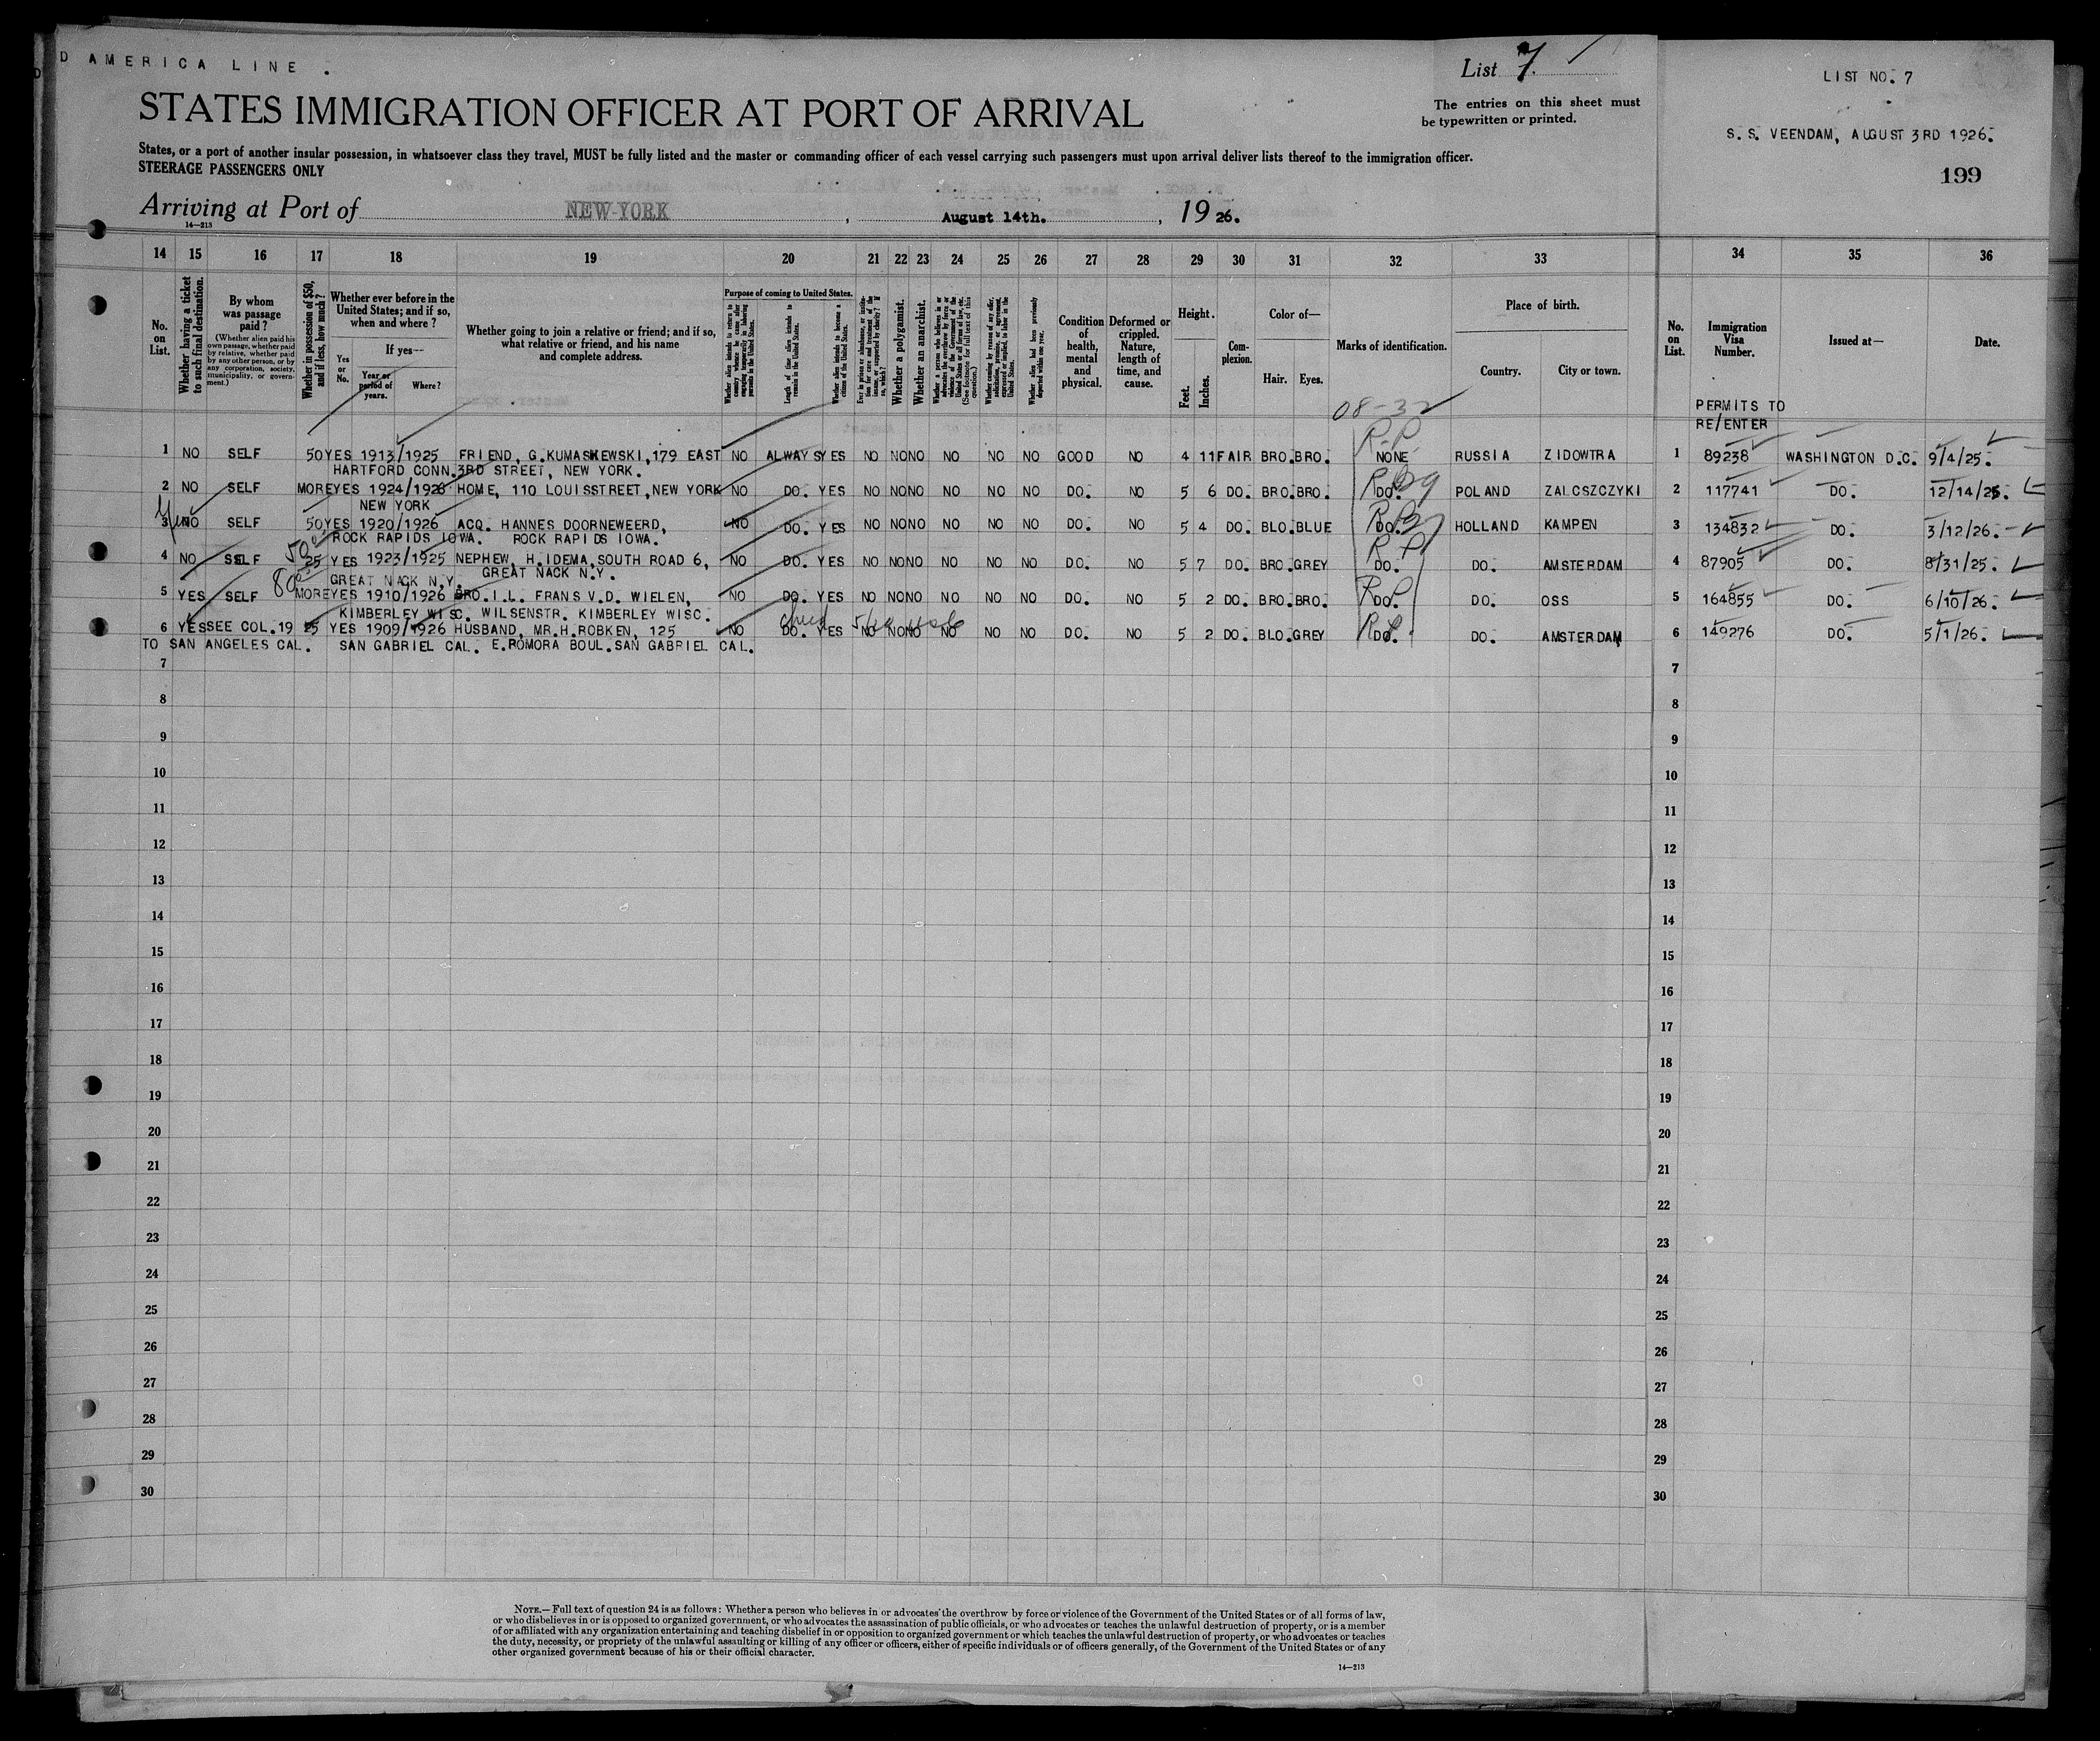 D AMERICA LINE .
List 7.
LIST NO. 7
STATES IMMIGRATION OFFICER AT PORT OF ARRIVAL
The entries on this sheet must
be typewritten or printed.
S. S. VEENDAM, AUGUST 3RD 1926.
States, or a port of another insular possession, in whatsoever class they travel, MUST be fully listed and the master or commanding officer of each vessel carrying such passengers must upon arrival deliver lists thereof to the immigration officer.
STEERAGE PASSENGERS ONLY
199
Arriving at Port of NEW-YORK , August 14th. , 19 26.
14—213
14 15 16 17 18 19 20 21 22 23 24 25 26 27 28 29 30 31 32 33 34 35 36
No. on List.
Whether having a ticket to such final destination.
By whom was passage paid?
(Whether alien paid his own passage, whether paid by relative, whether paid by any other person, or by any corporation, society, municipality, or government.)
Whether in possession of $50, and if less, how much?
Whether ever before in the United States; and if so, when and where?
If yes—
Yes or No.
Year or period of years.
Where?
Whether going to join a relative or friend; and if so, what relative or friend, and his name and complete address.
Purpose of coming to United States.
Whether alien intends to return to country whence he came after engaging temporarily in laboring pursuits in the United States.
Length of time alien intends to remain in the United States.
Whether alien intends to become a citizen of the United States.
Ever in prison or almshouse, or institution for care and treatment of the insane, or supported by charity? If so, which?
Whether a polygamist.
Whether an anarchist.
Whether a person who believes in or advocates the overthrow by force or violence of the Government of the United States or all forms of law, etc. (See footnote for full text of this question.)
Whether coming by reason of any offer, solicitation, promise, or agreement, expressed or implied, to labor in the United States.
Whether alien had been previously deported within one year.
Condition of health, mental and physical.
Deformed or crippled. Nature, length of time, and cause.
Height.
Feet.
Inches.
Complexion.
Color of—
Hair.
Eyes.
Marks of identification.
Place of birth.
Country.
City or town.
No. on List.
Immigration Visa Number.
Issued at—
Date.
08-32
PERMITS TO
RE/ENTER
1 NO SELF 50 YES 1913/1925 FRIEND, G.KUMASKEWSKI,179 EAST NO ALWAYS YES NO NO NO NO NO NO GOOD NO 4 11 FAIR BRO. BRO. R-P NONE RUSSIA ZIDOWTRA 1 89238 WASHINGTON D.C. 9/4/25.
HARTFORD CONN. 3RD STREET, NEW YORK.
2 NO SELF MORE YES 1924/1926 HOME, 110 LOUISSTREET, NEW YORK NO DO. YES NO NO NO NO NO NO DO. NO 5 6 DO. BRO. BRO. DO. POLAND ZALCSZCZYKI 2 117741 DO. 12/14/25.
NEW YORK
3 NO SELF 50 YES 1920/1926 ACQ. HANNES DOORNEWEERD, NO DO. YES NO NO NO NO NO NO DO. NO 5 4 DO. BLO. BLUE DO. HOLLAND KAMPEN 3 134832 DO. 3/12/26.
ROCK RAPIDS IOWA. ROCK RAPIDS IOWA.
4 NO SELF 50 25 YES 1923/1925 NEPHEW, H.IDEMA, SOUTH ROAD 6, NO DO. YES NO NO NO NO NO NO DO. NO 5 7 DO. BRO. GREY R P DO. DO. AMSTERDAM 4 87905 DO. 8/31/25.
GREAT NACK N.Y. GREAT NACK N.Y.
5 YES SELF 80 MORE YES 1910/1926 BRO.I.L. FRANS V.D. WIELEN, NO DO. YES NO NO NO NO NO NO DO. NO 5 2 DO. BRO. BRO. DO. DO. OSS 5 164855 DO. 6/10/26.
KIMBERLEY WISC. WILSENSTR. KIMBERLEY WISC.
6 YES SEE COL.19 25 YES 1909/1926 HUSBAND, MR.H.ROBKEN, 125 NO DO. YES NO NO NO NO NO NO DO. NO 5 2 DO. BLO. GREY DO. DO. AMSTERDAM 6 149276 DO. 5/1/26.
TO SAN ANGELES CAL. SAN GABRIEL CAL. E.ROMORA BOUL.SAN GABRIEL CAL.
7 7
8 8
9 9
10 10
11 11
12 12
13 13
14 14
15 15
16 16
17 17
18 18
19 19
20 20
21 21
22 22
23 23
24 24
25 25
26 26
27 27
28 28
29 29
30 30
NOTE.—Full text of question 24 is as follows: Whether a person who believes in or advocates the overthrow by force or violence of the Government of the United States or of all forms of law,
or who disbelieves in or is opposed to organized government, or who advocates the assassination of public officials, or who advocates or teaches the unlawful destruction of property, or is a member
of or affiliated with any organization entertaining and teaching disbelief in or opposition to organized government or which teaches the unlawful destruction of property, or who advocates or teaches
the duty, necessity, or propriety of the unlawful assaulting or killing of any officer or officers, either of specific individuals or of officers generally, of the Government of the United States or of any
other organized government because of his or their official character.
14—213